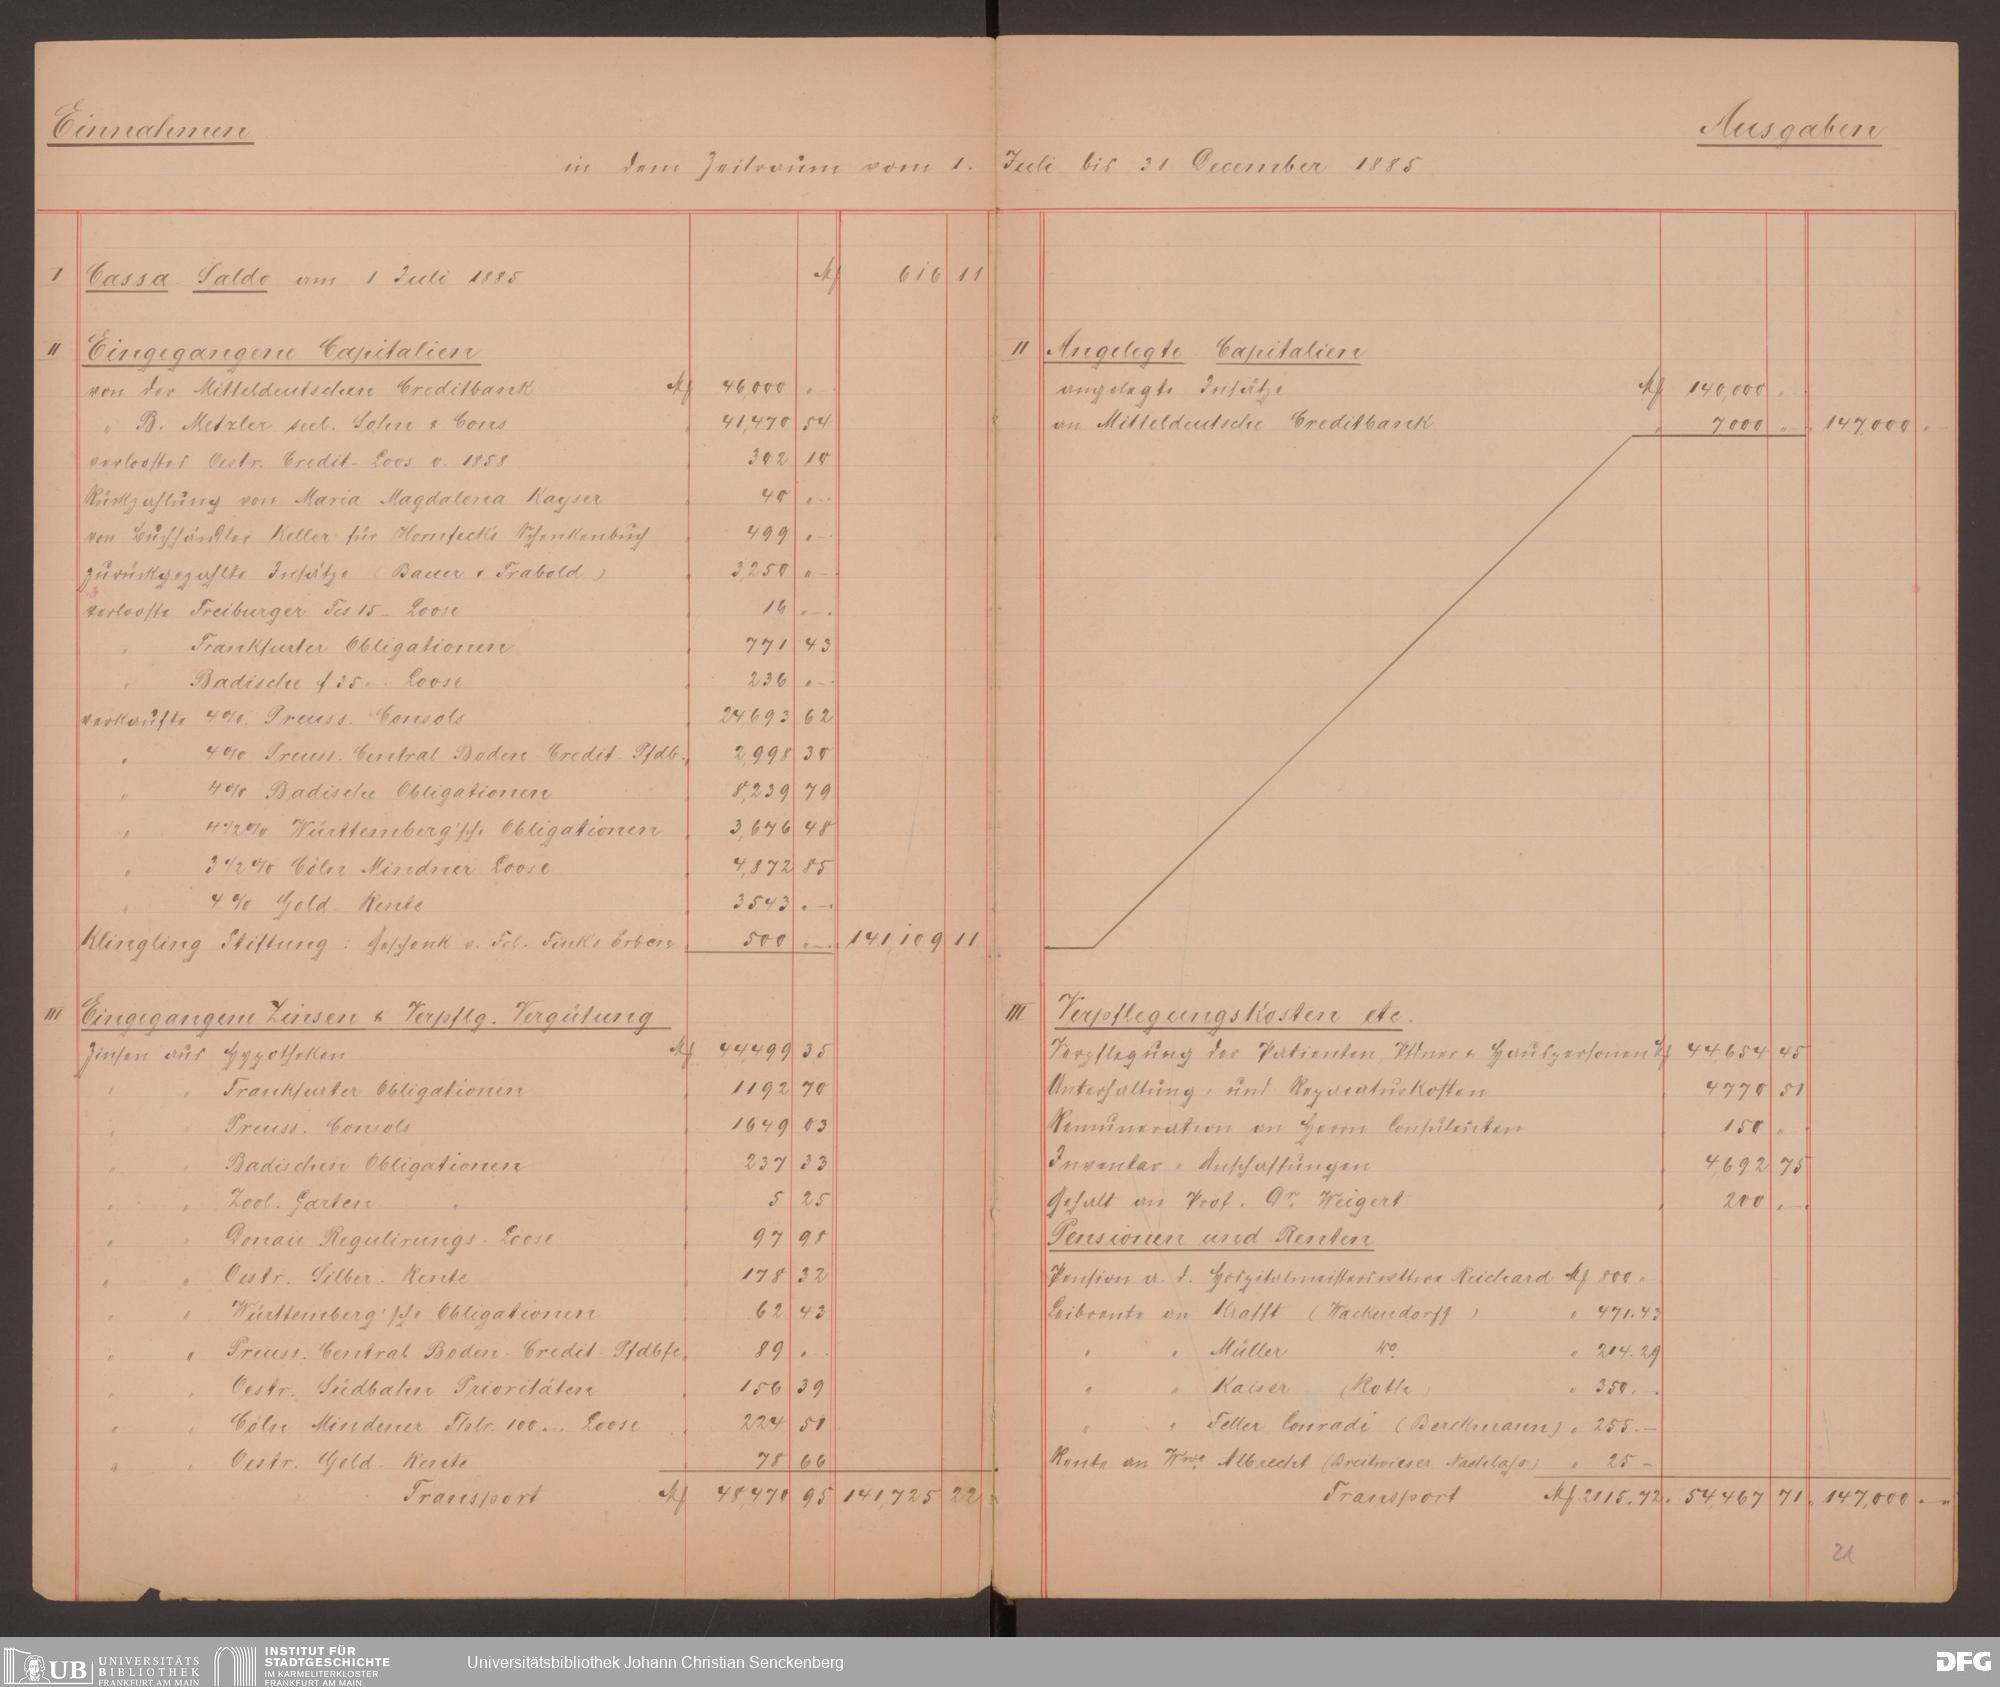 Einnahmen
in dem Zeitraum vom 1.
I Cassa Saldo am 1 Juli 1885 Mf 616 11
II Eingegangene Capitalien
von der Mitteldeutschen Creditbank Mf 46,000 „ —
„ B. Metzler seel. Sohn & Cons „ 41,470 54
verlooster Oestr. Credit-Loos v. 1858 „ 302 10
Rückzahlung von Maria Magdalena Kayser „ 40 „ —
von Buchhändler Keller für Hornfecks Schenkenbuch „ 499 „ —
zurückgezahlte Insätze (Bauer & Trabold) „ 3,250 „ —
verlooste Freiburger Fcs 15 - Loose „ 16 „ —
„ Frankfurter Obligationen „ 771 43
„ Badische f 35 „ - Loose „ 236 „ —
verkaufte 4% Preuss. Consols „ 24,693 62
„ 4% Preuss. Central Boden Credit-Pfdb. „ 2,998 30
„ 4% Badische Obligationen „ 8,239 79
„ 4 1/2% Württemberg'sche Obligationen „ 3,676 48
„ 3 1/2% Cöln Mindner Loose „ 4,872 85
„ 4% Gold Rente „ 3543 „ —
Klingling Stiftung: Geschenk v. Frl. Finks Erben „ 500 „ — „ 141,109 11
III Eingegangene Zinsen & Verpflg. Vergütung
Zinsen aus Hypotheken Mf 44,499 35
„ „ Frankfurter Obligationen „ 1192 70
„ „ Preuss. Consols „ 1649 03
„ „ Badischen Obligationen „ 237 33
„ „ Zool. Garten „ „ 5 25
„ „ Donau Regulirungs-Loose „ 97 98
„ „ Oestr. Silber-Rente „ 178 32
„ „ Württemberg'sche Obligationen „ 62 43
„ „ Preuss. Central Boden-Credit-Pfdbfe „ 89 „ —
„ „ Oestr. Südbahn Prioritäten „ 156 39
„ „ Cöln Mindener Thlr. 100 „ - Loose „ 224 51
„ „ Oestr. Gold-Rente „ 78 66
Transport Mf 48,470 95 141,725 22
Ausgaben
Juli bis 31 December 1885
II Angelegte Capitalien
angelegte Insätze Mf 140,000 „ —
an Mitteldeutsche Creditbank „ 7000 „ — „ 147,000 „ —
III Verpflegungskosten etc.
Verpflegung der Patienten, Pfdner & Hauspersonen Mf 44,654 45
Unterhaltung- und Reparaturkosten „ 4770 51
Remuneration an Herrn Consulenten „ 150 „ —
Inventar-Anschaffungen „ 4,692 75
Gehalt an Prof. Dr. Weigert „ 200 „ —
Pensionen und Renten
Pension a. d. Hospitalmeisterswittwe Reichard Mf 800 „
Leibrente an Krafft (Wackendorff) „ 471.43
„ „ Müller do. „ 214.29
„ „ Kaiser (Roth) „ 350. —
„ „ Feller Conradi (Berckmann) „ 255. —
Rente an Wwe Albrecht (Breitwieser Nachlass) „ 25 —
Transport Mf 2115.72. 54,467 71 „ 147,000 „ —
21
UB UNIVERSITÄTS
BIBLIOTHEK
FRANKFURT AM MAIN
INSTITUT FÜR
STADTGESCHICHTE
IM KARMELITERKLOSTER
FRANKFURT AM MAIN
Universitätsbibliothek Johann Christian Senckenberg
DFG